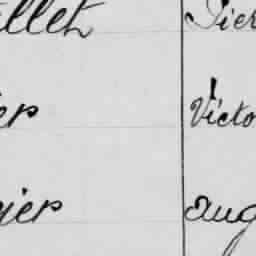 illet Pier
er Victo
gier Aug